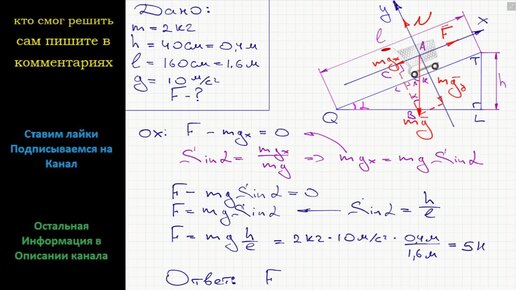 кто смог решить
сам пишите в
комментариях
Ставим лайки
Подписываемся на
Канал
Остальная
Информация в
Описании канала
Дано:
m = 2кг
h = 40см = 0,4м
l = 160см = 1,6м
g = 10 м/с²
F - ?
y
N
x
l
A
F
mgx
C
mgy
T
h
Q
α
B
mg
L
ox: F - mgx = 0
Sinα = mgx/mg => mgx = mg Sinα
F - mg Sinα = 0
F = mg Sinα ← Sinα = h/l
F = mg h/l = 2кг · 10 м/с² · 0,4м/1,6м = 5Н
Ответ: F